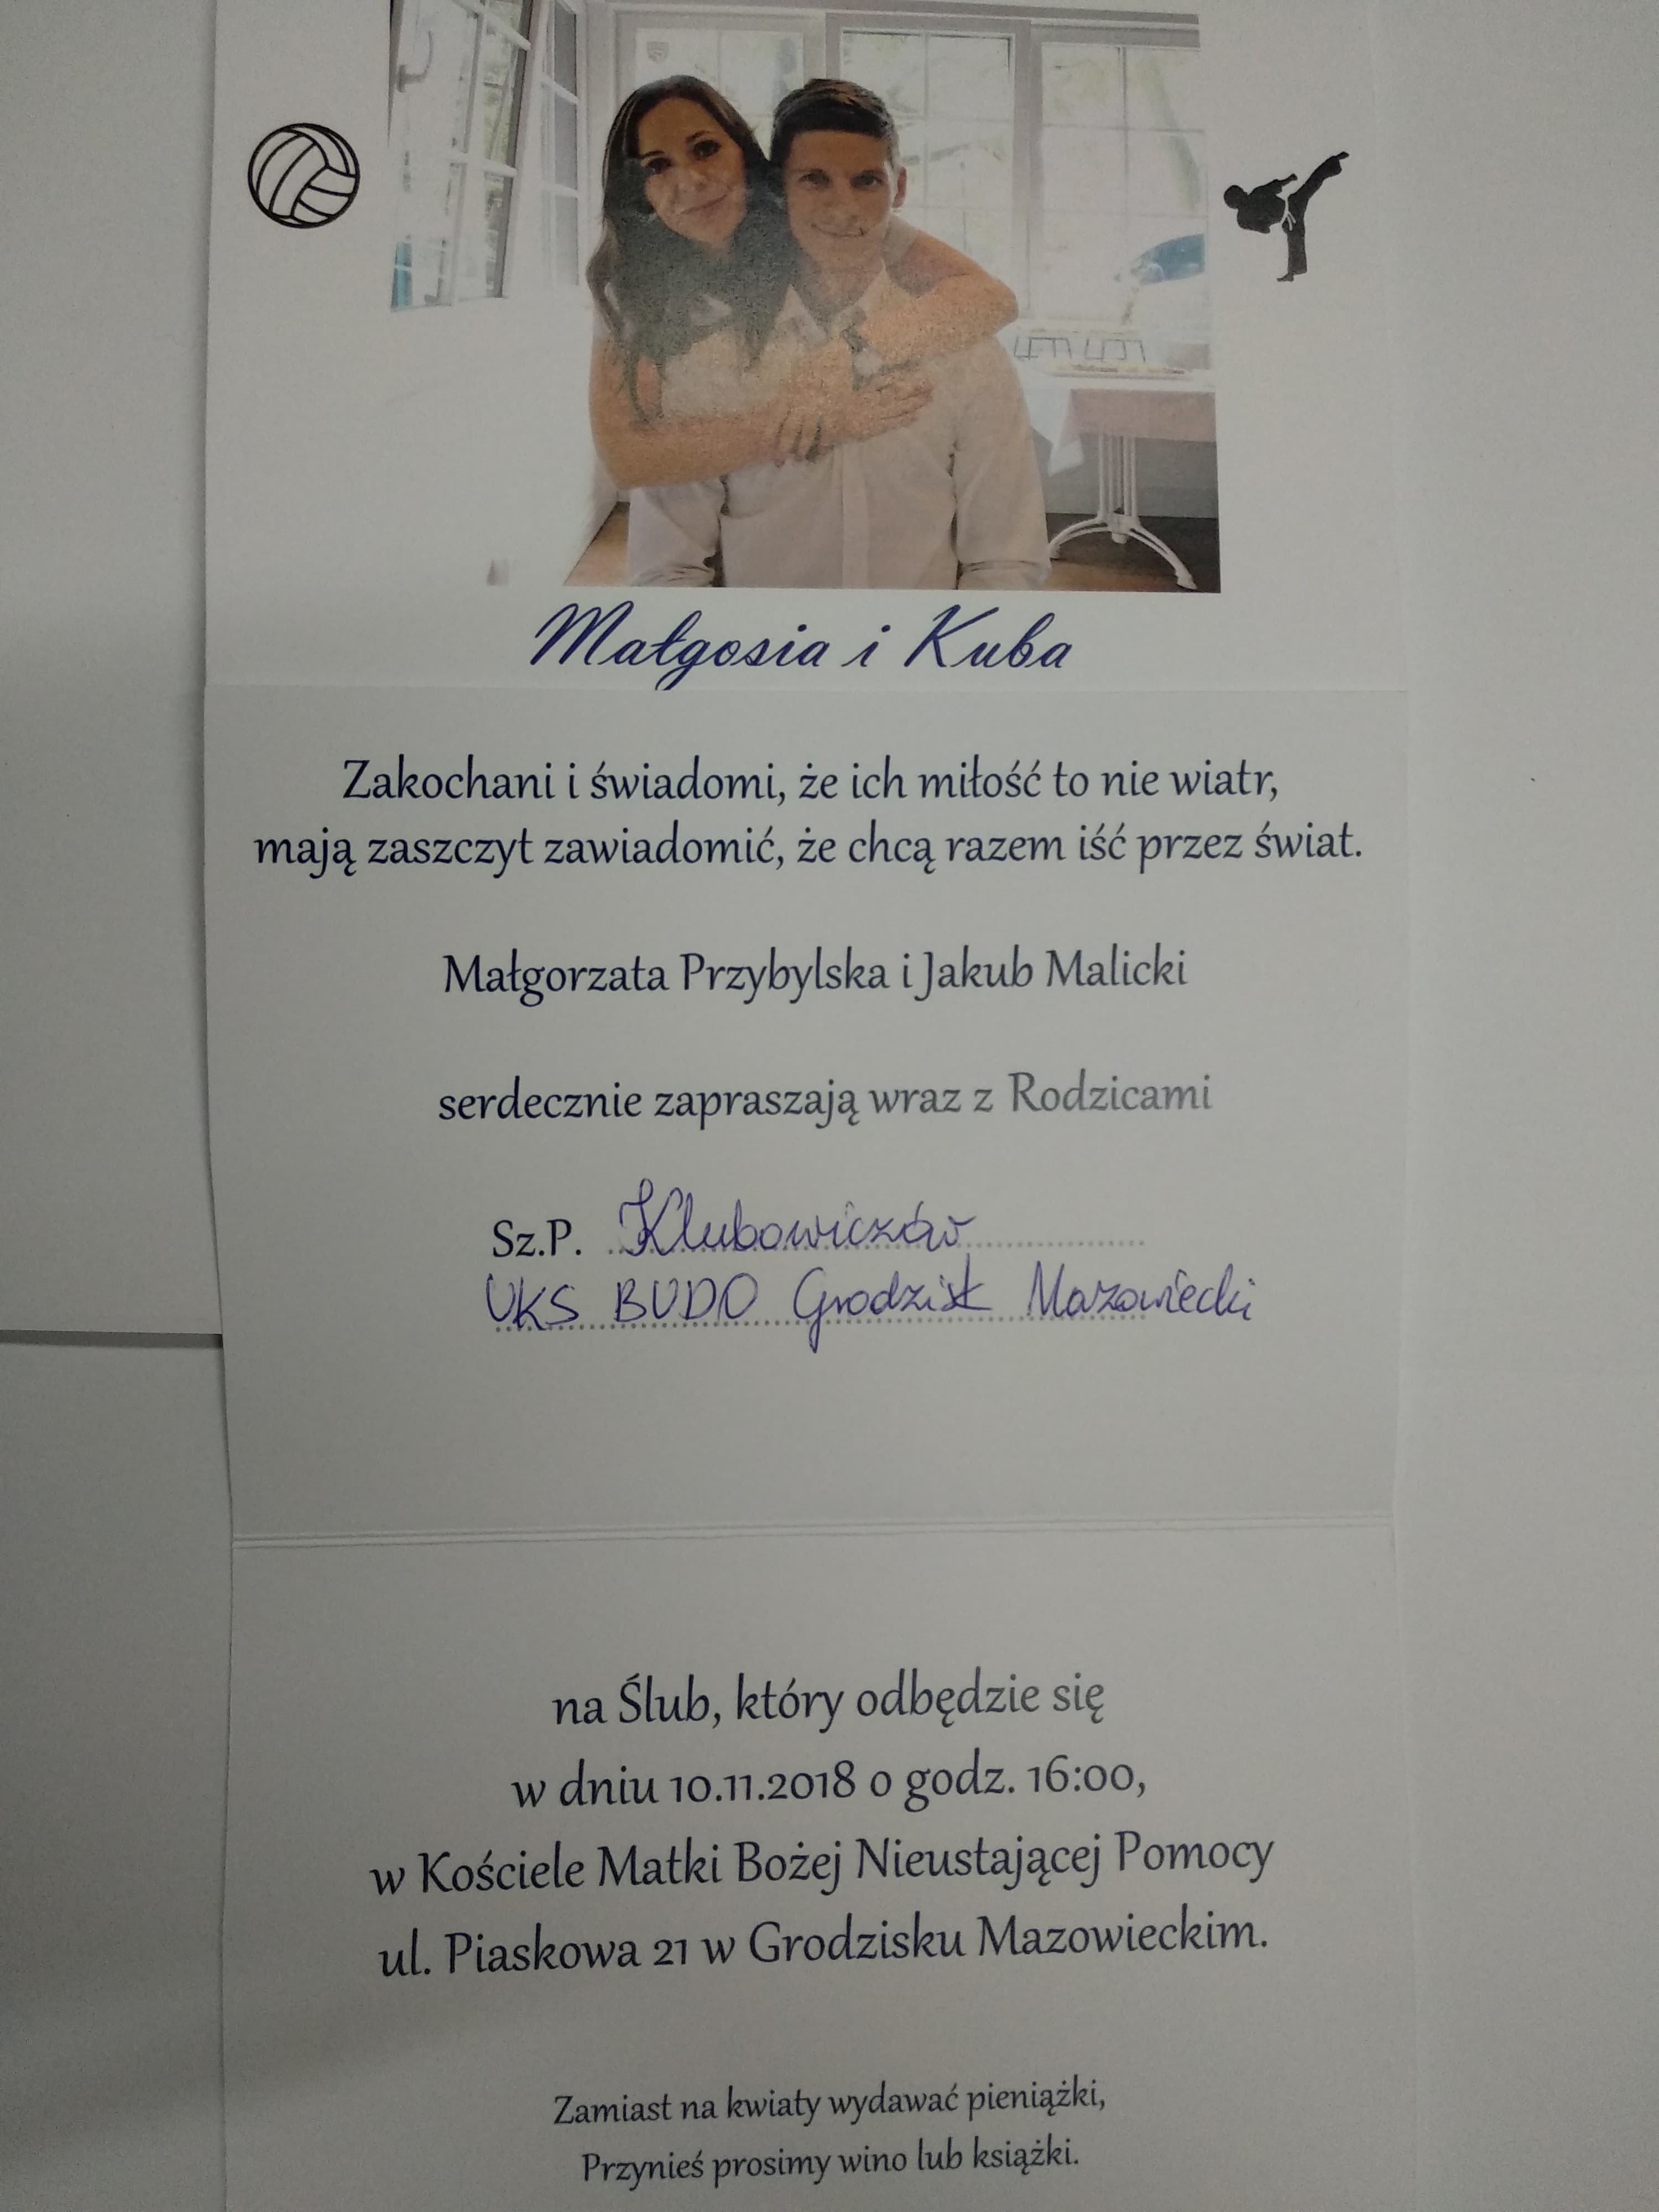 Małgosia i Kuba
Zakochani i świadomi, że ich miłość to nie wiatr,
mają zaszczyt zawiadomić, że chcą razem iść przez świat.
Małgorzata Przybylska i Jakub Malicki
serdecznie zapraszają wraz z Rodzicami
Sz.P. Klubowiczów
UKS BUDO Grodzisk Mazowiecki
na Ślub, który odbędzie się
w dniu 10.11.2018 o godz. 16:00,
w Kościele Matki Bożej Nieustającej Pomocy
ul. Piaskowa 21 w Grodzisku Mazowieckim.
Zamiast na kwiaty wydawać pieniążki,
Przynieś prosimy wino lub książki.